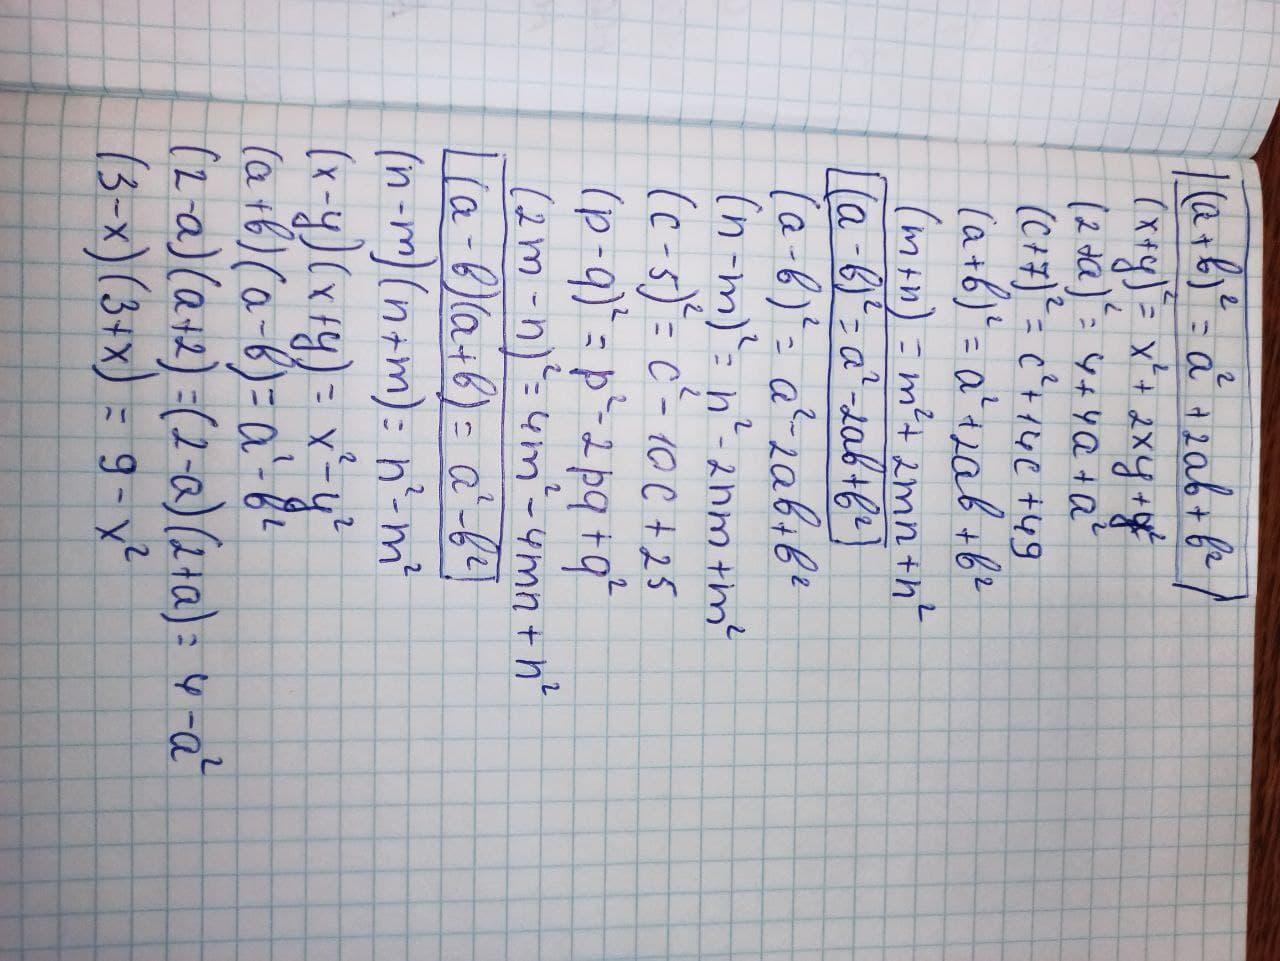 (a+b)² = a² + 2ab + b²
(x+y)² = x² + 2xy + y²
(2+a)² = 4 + 4a + a²
(c+7)² = c² + 14c + 49
(a+b)² = a² + 2ab + b²
(m+n) = m² + 2mn + n²
(a-b)² = a² - 2ab + b²
(a-b)² = a² - 2ab + b²
(n-m)² = n² - 2nm + m²
(c-5)² = c² - 10c + 25
(p-q)² = p² - 2pq + q²
(2m-n)² = 4m² - 4mn + n²
(a-b)(a+b) = a² - b²
(n-m)(n+m) = n² - m²
(x-y)(x+y) = x² - y²
(a+b)(a-b) = a² - b²
(2-a)(a+2) = (2-a)(2+a) = 4 - a²
(3-x)(3+x) = 9 - x²